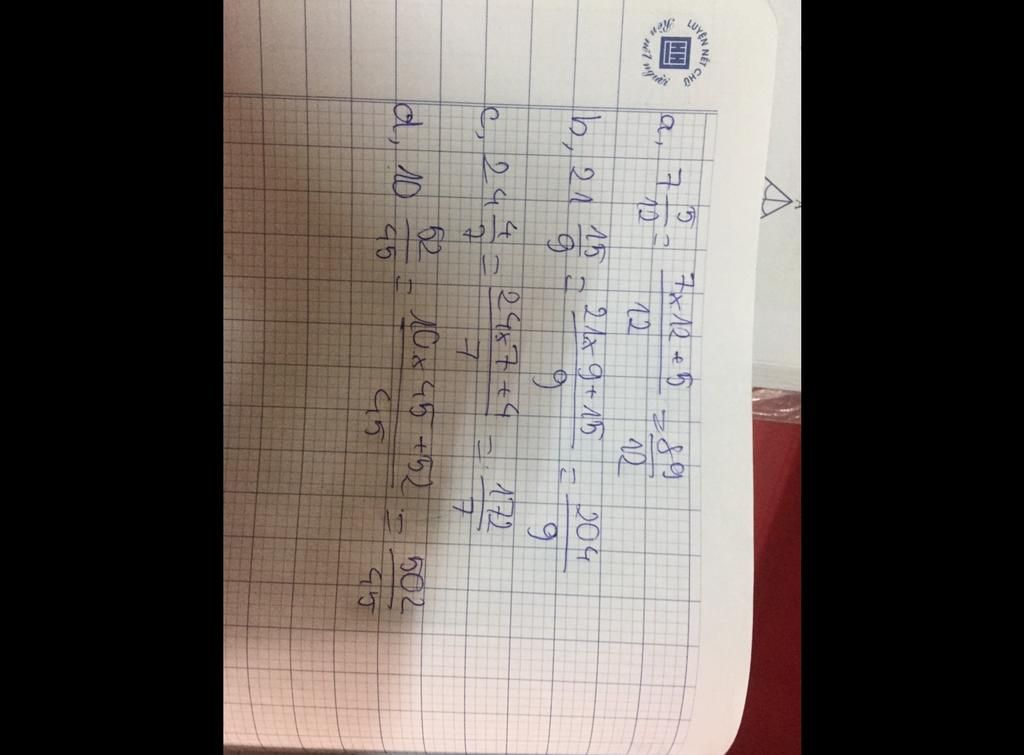 LUYỆN NÉT CHỮ
Rèn nét người
HH
a, 7 5/12 = (7 x 12 + 5)/12 = 89/12
b, 21 15/9 = (21 x 9 + 15)/9 = 204/9
c, 24 4/7 = (24 x 7 + 4)/7 = 172/7
d, 10 52/45 = (10 x 45 + 52)/45 = 502/45